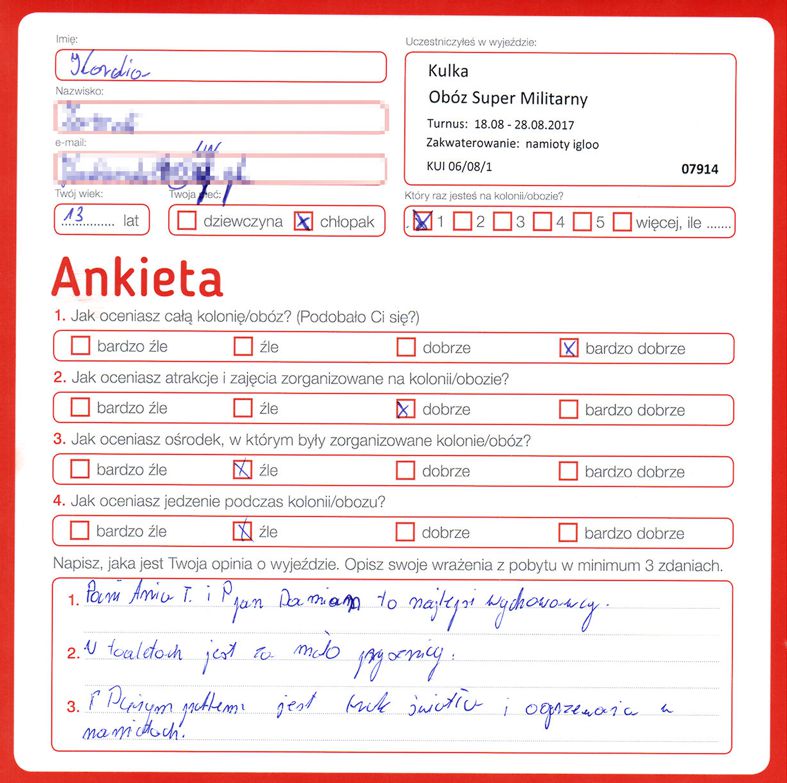 Imię:
Nazwisko:
e-mail:
Twój wiek:
13 lat
Twoja płeć:
dziewczyna chłopak
Uczestniczyłeś w wyjeździe:
Kulka
Obóz Super Militarny
Turnus: 18.08 - 28.08.2017
Zakwaterowanie: namioty igloo
KUI 06/08/1 07914
Który raz jesteś na kolonii/obozie?
1 2 3 4 5 więcej, ile .......
Ankieta
1. Jak oceniasz całą kolonię/obóz? (Podobało Ci się?)
bardzo źle źle dobrze bardzo dobrze
2. Jak oceniasz atrakcje i zajęcia zorganizowane na kolonii/obozie?
bardzo źle źle dobrze bardzo dobrze
3. Jak oceniasz ośrodek, w którym były zorganizowane kolonie/obóz?
bardzo źle źle dobrze bardzo dobrze
4. Jak oceniasz jedzenie podczas kolonii/obozu?
bardzo źle źle dobrze bardzo dobrze
Napisz, jaka jest Twoja opinia o wyjeździe. Opisz swoje wrażenia z pobytu w minimum 3 zdaniach.
1. Pani Ania T. i Pan Damian to najlepsi wychowawcy.
2. W toaletach jest za mało
3. jest brak światła i ogrzewania w
namiotach.